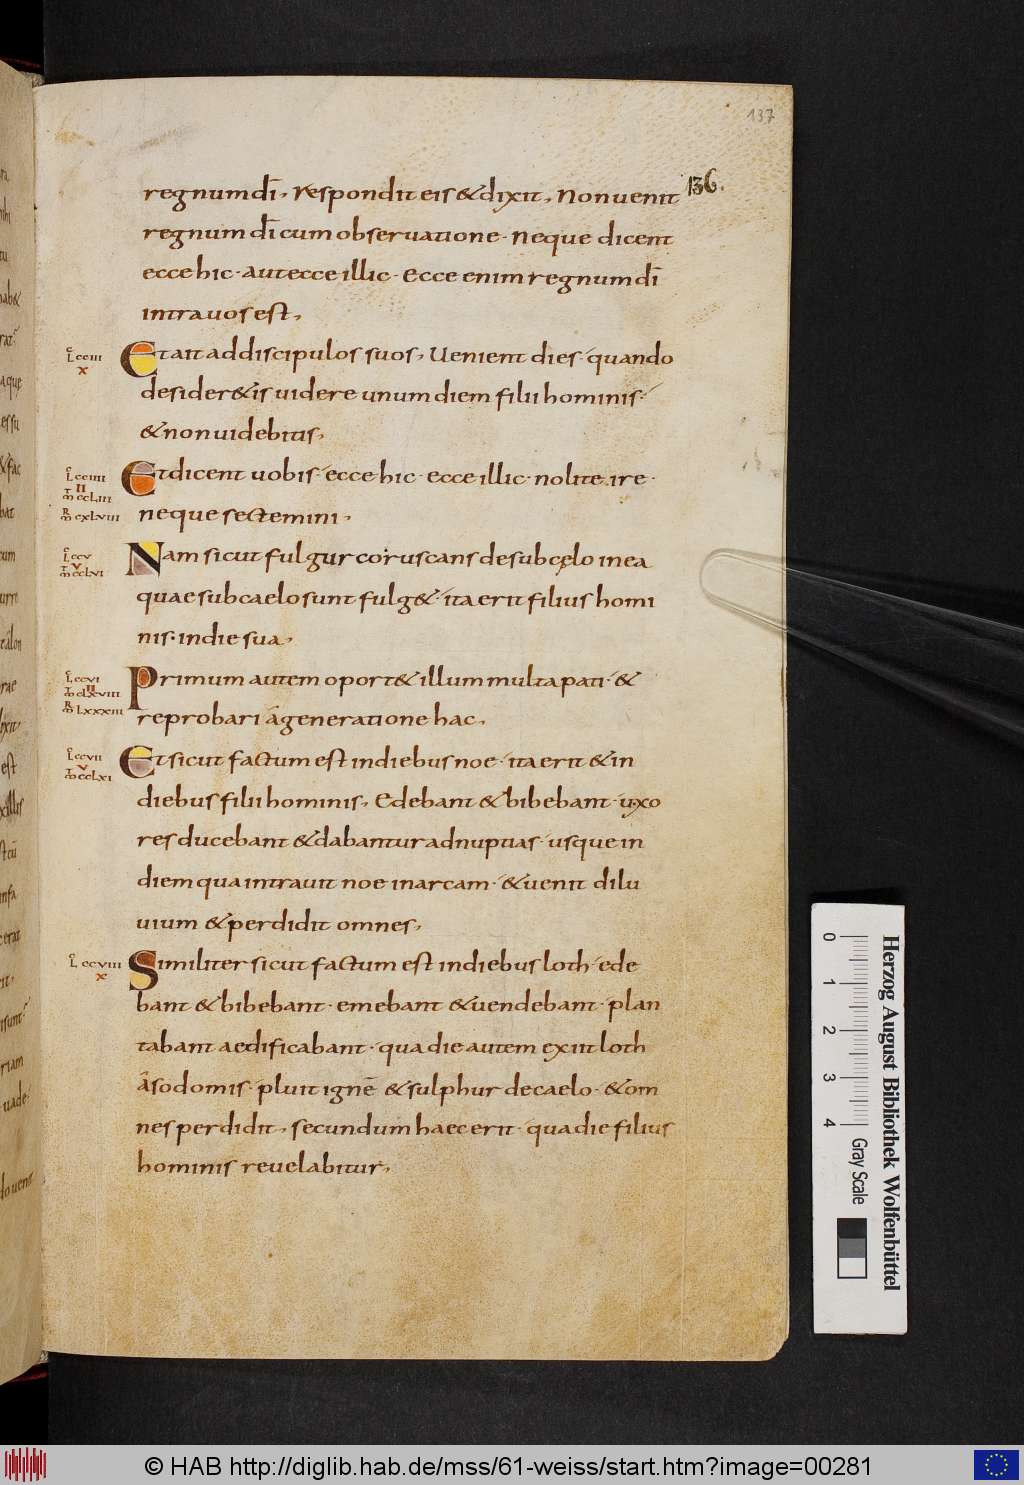 137
136.
regnum dī, Respondit eis & dixit, Non uenit
regnum dī cum obseruatione · Neque dicent
ecce hic · aut ecce illic · Ecce enim regnum dī
intra uos est,
L cciii
x
Et ait ad discipulos suos, Uenient dies · quando
desider&is uidere unum diem filii hominis ·
& non uidebitis,
L cciiii
II
ccLiii
cxLviii
Et dicent uobis · ecce hic · ecce illic · nolite ire ·
neque sectemini,
L ccv
v
ccLvi
Nam sicut fulgur coruscans de sub cęlo in ea
quae sub caelo sunt fulg& · ita erit filius homi
nis · in die sua,
L ccvi
II
cLxviii
Lxxxiii
Primum autem oport& illum multa pati · &
reprobari á generatione hac,
L ccvii
v
ccLxi
Et sicut factum est in diebus noe · ita erit & in
diebus filii hominis, Edebant & bibebant · uxo
res ducebant & dabantur ad nuptias · usque in
diem qua intrauit noe in arcam · & uenit dilu
uium & perdidit omnes,
L ccviii
x
Similiter sicut factum est in diebus loth · ede
bant & bibebant · emebant & uendebant · plan
tabant aedificabant · qua die autem exiit loth
á sodomis · pluit ignē & sulphur de caelo · & om
nes perdidit, secundum haec erit · qua die filius
hominis reuelabitur,
0 1 2 3 4
Gray Scale
Herzog August Bibliothek Wolfenbüttel
© HAB http://diglib.hab.de/mss/61-weiss/start.htm?image=00281